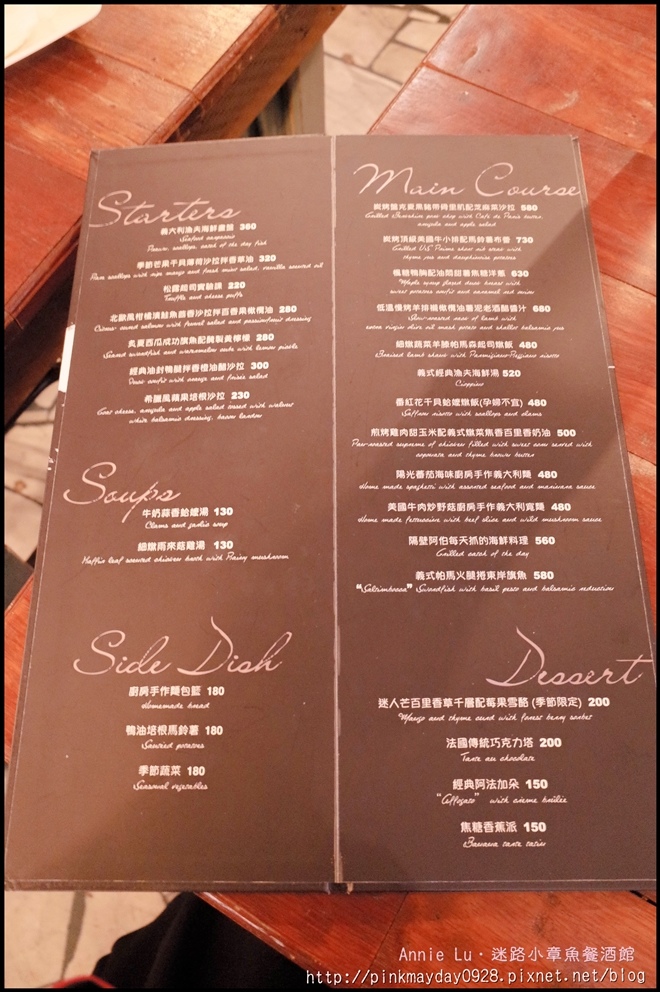 Starters
義大利漁夫海鮮盤 360
Seafood carpaccio
Prawn, scallops, catch of the day fish
季節芒果干貝薄荷沙拉拌香草油 320
Raw scallops with ripe mango and fresh mint salad, vanilla scented oil
松露起司爽臉課 220
Truffle and cheese puffs
北歐風柑橘燻鮭魚茴香沙拉拌百香果橄欖油 280
Citrus-cured salmon with fennel salad and passionfruit dressing
炙夏西瓜成功旗魚配醃製黃檸檬 280
Seared swordfish and watermelon cube with lemon pickle
經典油封鴨腿拌香橙油醋沙拉 300
Duck confit with orange and frisée salad
希臘風蘋果培根沙拉 230
Goat cheese, arugula and apple salad tossed with walnut
white balsamic dressing, bacon lardon
Soups
牛奶蒜香蛤蠣湯 130
Clams and garlic soup
細燉雨來菇雞湯 130
Kaffir leaf scented chicken broth with Rainy mushroom
Side Dish
廚房手作麵包籃 180
Homemade bread
鴨油培根馬鈴薯 180
Sautéed potatoes
季節蔬菜 180
Seasonal vegetables
Main Course
炭烤盤克夏黑豬帶骨里肌配芝麻菜沙拉 580
Grilled Berkshire pork chop with Cafe de Paris butter,
arugula and apple salad
炭烤頂級美國牛小排配馬鈴薯布蕾 730
Grilled US Prime short rib steak with
thyme jus and dauphinoise potatoes
楓糖鴨胸配油悶甜薯焦糖洋蔥 630
Maple syrup glazed duck breast with
sweet potatoes confit and caramel red onion
低溫慢烤羊排襯橄欖油薯泥老酒醋醬汁 680
Slow-roasted rack of lamb with
extra virgin olive oil mash potato and shallot balsamic jus
細燉蔬菜羊膝帕馬森起司燉飯 480
Braised lamb shank with Parmigiano-Reggiano risotto
義式經典漁夫海鮮湯 520
Cioppino
番紅花干貝蛤蠣燉飯(孕婦不宜) 480
Saffron risotto with scallops and clams
煎烤雞肉甜玉米配義式燉菜焦香百里香奶油 500
Pan-roasted supreme of chicken filled with sweet corn served with
caponata and thyme brown butter
陽光番茄海味廚房手作義大利麵 480
Home made spaghetti with assorted seafood and marinara sauce
美國牛肉炒野菇廚房手作義大利寬麵 480
Home made fettuccine with beef slice and wild mushroom sauce
隔壁阿伯每天抓的海鮮料理 560
Grilled catch of the day
義式帕馬火腿捲東岸旗魚 580
"Saltimbocca" Swordfish with basil pesto and balsamic reduction
Dessert
迷人芒百里香草千層配莓果雪酪 (季節限定) 200
Mango and thyme curd with forest berry sorbet
法國傳統巧克力塔 200
Tarte au chocolate
經典阿法加朵 150
"Affogato" with crème brûlée
焦糖香蕉派 150
Banana tarte tatin
Annie Lu·迷路小章魚餐酒館
http://pinkmayday0928.pixnet.net/blog